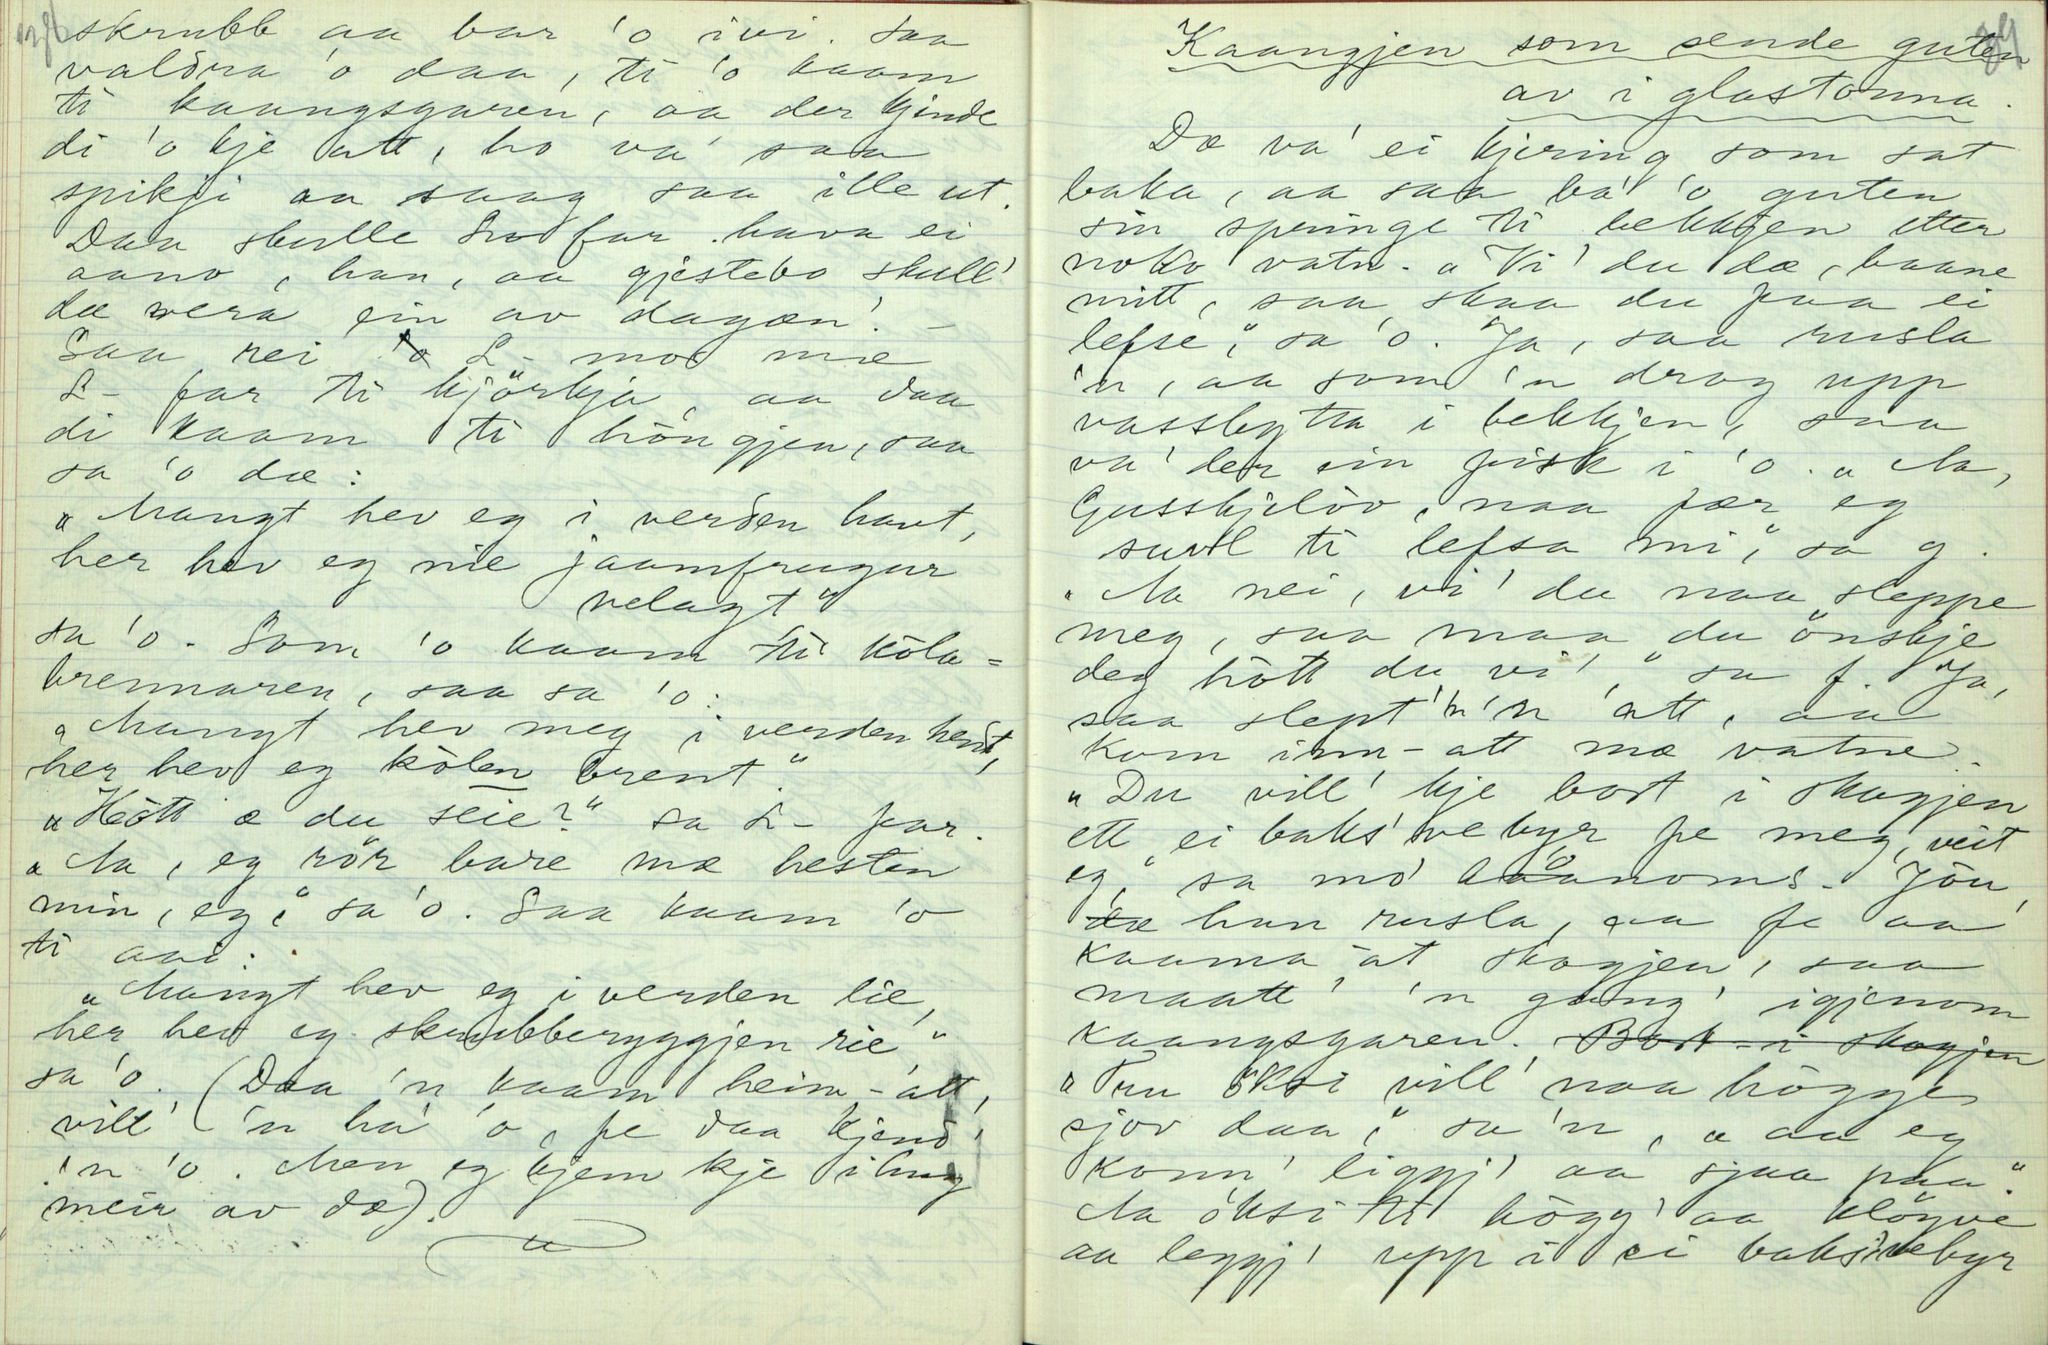 skrubb aa bar 'o ivi. Saa
valdra 'o daa, ti 'o kaam
ti kaangsgaren, aa der kjende
di 'o kje att, ho va' saa
spikji aa saag saa ille ut.
Daa skulle Lrofar hava ei
aano, han, aa gjestebo skull'
dæ vera ein av dagæn'. –
Saa rei L– mor mæ
L– far ti kjörkja, aa daa
di kaam ti höngjen, saa
sa 'o dæ:
„Mangt hev eg i verden havt,
her hev eg nie jaamfrugur
velagt"
sa 'o. Som 'o kaam ti köla=
brennaren, saa sa 'o:
„Mangt hev meg i verden hendt,
her hev eg kölen brent."
„Hött æ du seie?" sa L– far.
„Aa, eg rör bare mæ hesten
min, eg," sa 'o. Saa kaam 'o
ti aai:
„Mangt hev eg i verden lie,
her hev eg skrubberyggjen rie"
sa 'o. (Daa 'n kaam heim-att,
vill' 'n ha' 'o, fe daa kjend'
'n 'o. Men eg kjem kje ihug
meir av dæ).
Kaangjen som sende guten
av i glastonna.
Dæ va' ei kjering som sat
baka, aa saa ba' 'o guten
sin springe ti bekkjen etter
noko vatn. „Vi' du dæ, baane
mitt, saa skaa du faa ei
lefse," sa 'o. Ja, saa rusla
'n, aa som 'n drog upp
vassbytta i bekkjen, saa
va' der ein fisk i 'o. „Aa,
Gusskjelöv, naa fær eg
suvl ti lefsa mi," sa g.
„Aa nei, vi' du naa sleppe
meg, saa maa du önskje
deg hött du vi'," sa f. Ja,
saa slept' 'n 'n att, aa
kom inn-att mæ vatne.
„Du vill' kje bort i skogjen
ett ei baks'vebyr fe meg, veit
eg," sa mo' hanoms. Jöu,
dæ han rusla, aa fe aa
kaama åt skogjen, saa
maatt' 'n gang' igjenom
kaangsgaren. Bort i skogjen
„Fru öksi vill' naa högge
sjov daa," sa 'n, „aa eg
konn' liggj' aa sjaa paa."
Aa öksi ti högg' aa klöyve
aa leggj' upp i ei baks'vebyr